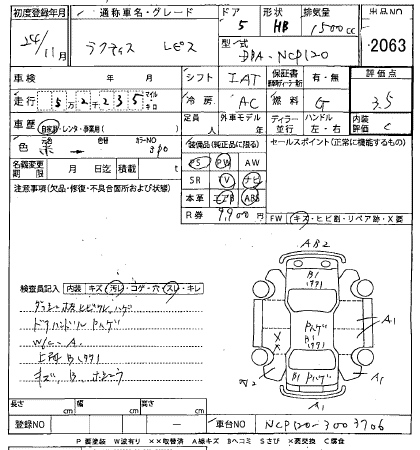 初度登録年月 通称車名・グレード ドア 形状 排気量 出品NO
24/11月 ラクティス レピス 5 HB 1500cc
型式 DBA-NCP120 2063
車検 年 月 シフト IAT 保証書 有・無 評価点
走行 5万2千235 マイル キロ 冷房 AC 燃料 G 3.5
車歴 自家用・レンタ・事業用( ) 定員 人 外車モデル 年 ディーラー 並行 ハンドル 左・右 内装評価 C
色替 カラーNO
色 → 装備品(純正品に限る) セールスポイント(正常に機能するもの)
名義変更期限 月 日迄 積載 t PS PW AW
注意事項(欠品・修復・不具合箇所および状態) SR TV ナビ
本革 エアB ABS
R券 9,900円 FW キズ・ヒビ割・リペア跡・X要
AB2
B1
検査員記入 内装 キズ・汚レ・コゲ・穴・スレ・キレ
ドアハンドル Pハゲ Pハゲ
W/C-A.
A1 A1
キズ、B、
W2 A1
A1
長さ cm 幅 cm 高さ cm
登録NO ー 車台NO NCP120-3003706
P 要塗装 W波有り ××取替済 A線キズ Bヘコミ Sさび ×要交換 C腐食